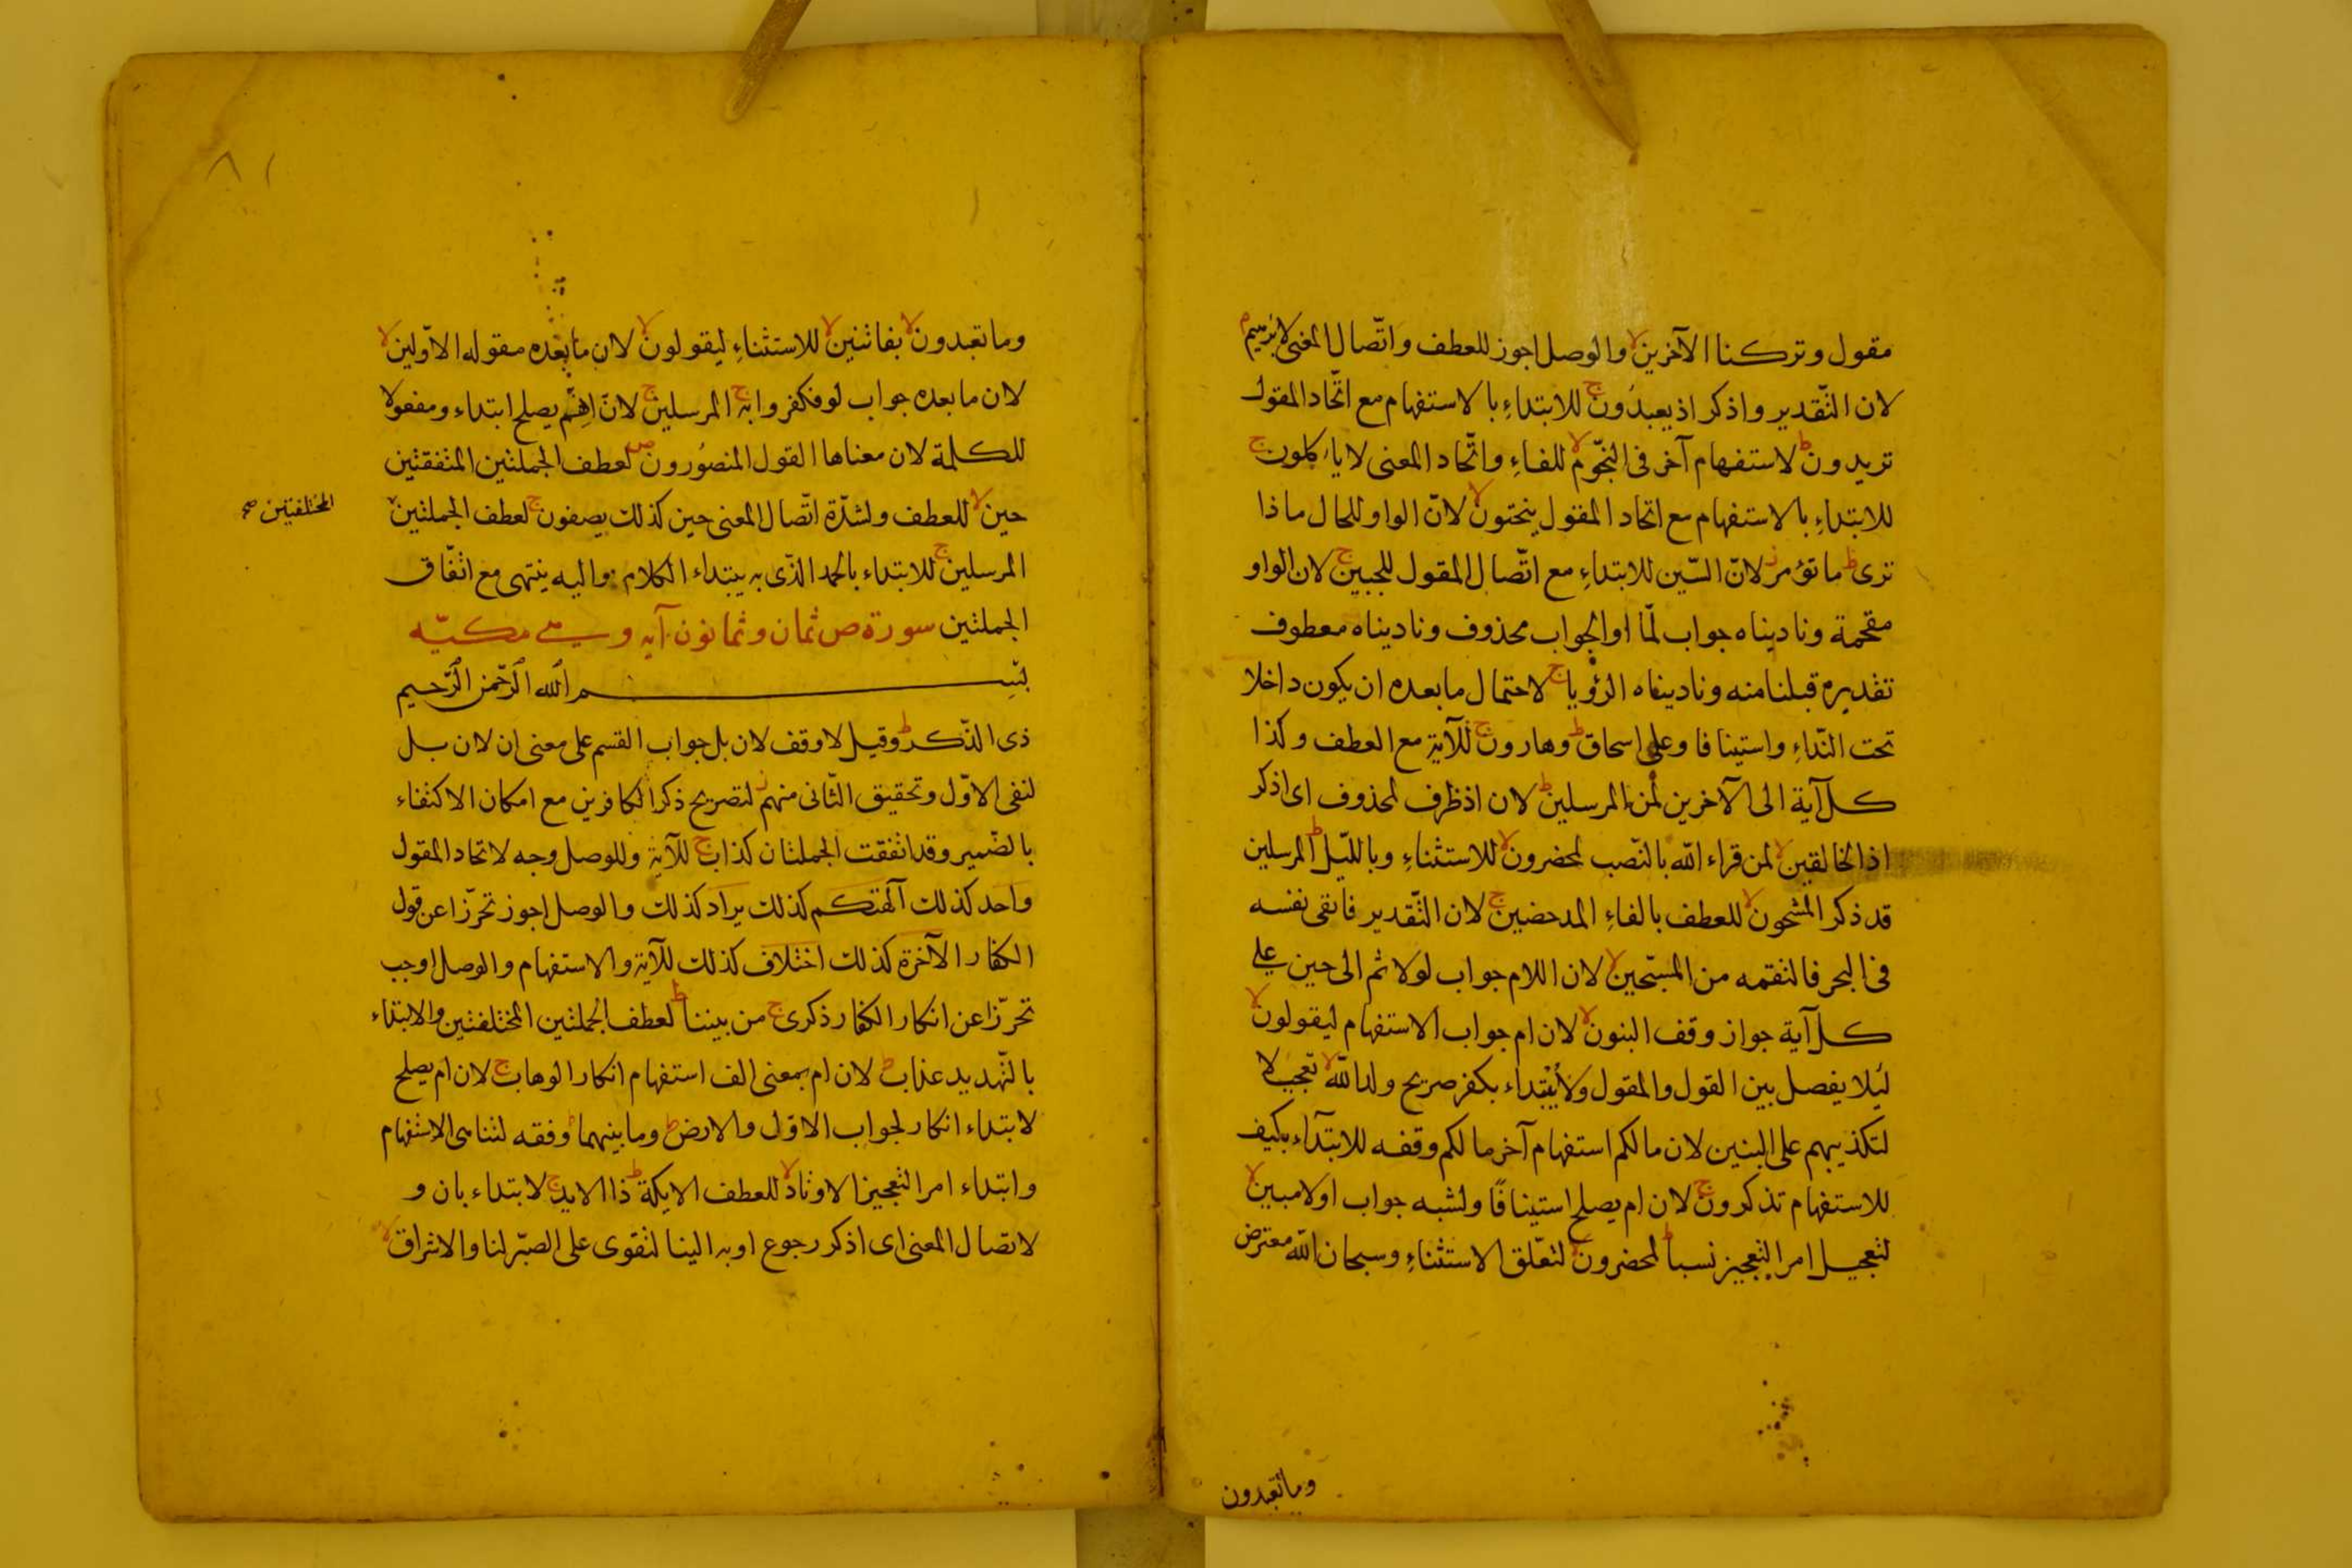 مقول وتركنا الآخرين لا والوصل اجوز للعطف واتّصال المعنى لابرهيم م
لان التّقدير واذكر اذ يعبدُون ج للابتداءِ بالاستفهام مع اتّحاد المقول
تريدون ط لاستفهام آخر فى النجّوم لا للفاءِ واتّحاد المعنى لا ياكلون ج
للابتداءِ بالاستفهام مع اتحاد المقول ينحتون لا لانّ الواو للحال ماذا
ترى ط ما تؤمر ز لانّ السّين للابتداءِ مع اتّصال المقول للجبين ج لان الواو
مقحمة وناديناه جواب لمّا او الجواب محذوف وناديناه معطوف
تقديره قبلنا منه وناديناه الرؤيا ج لاحتمال ما بعده ان يكون داخلا
تحت النّداءِ واستينافا وعلى اسحاق ط وهارون ج للآية مع العطف وكذا
كل آية الى الآخرين لمن المرسلين ط لان اذ ظرف لمحذوف اى اذكر
اذ الخالقين لا لمن قراء الله بالنّصب لمحضرون لا للاستثناءِ وبالليّل ط المرسلين
قد ذكر المشحون لا للعطف بالفاءِ المدحضين ج لان التّقدير فابقى نفسه
فى البحر فالتقمه من المسبّحين لا لان اللام جواب لولا ثم الى حين على
كل آية جواز وقف البنون لا لان ام جواب الاستفهام ليقولون لا
لئلا يفصل بين القول والمقول ولا يبتداء بكفر صريح ولد اللّه لا تعجيلا
لتكذيبهم على البنين لان مالكم استفهام آخر مالكم وقفه للابتدآء بكيف
للاستفهام تذكرون ج لان ام يصلح استينافًا ولشبه جواب اولا مبين لا
لتعجيل امر التعجيز نسبا ط لمحضرون لا لتعلّق الاستثناءِ وسبحان اللّه معترض
وما تعبدون
٨١
وما تعبدون لا بفاتنين لا للاستثناءِ ليقولون لا لان ما بعده مقوله الاوّلين لا
لان ما بعده جواب لو فكفروا به ج المرسلين ج لانّ اِنّهم يصلح ابتداء ومفعولا
للكلمة لان معناها القول المنصُورون ص لعطف الجملتين المتفقتين
حين لا للعطف ولشدّة اتّصال المعنى حين كذلك يصفون ج لعطف الجملتين
المختلفتين صح
المرسلين ج للابتداء بالحمد الذّى به يبتداء الكلام واليه ينتهى مع اتّفاق
الجملتين سورة ص ثمان وثمانون آيه وهى مكيّه
بسم الله الرّحمن الرّحيم
ذى الذّكر ط وقيل لا وقف لان بل جواب القسم على معنى ان لان بل
لنفى الاوّل وتحقيق الثّانى منهم ز لتصريح ذكر الكافرين مع امكان الاكتفاء
بالضّمير وقد اتفقت الجملتان كذاب ج للآية وللوصل وجه لاتحاد المقول
واحد كذلك آلهتكم كذلك يراد كذلك والوصل اجوز تحرّزا عن قول
الكفار الآخرة كذلك اختلاف كذلك للآية والاستفهام والوصل اوجب
تحرّزا عن انكار الكفار ذكرى ج من بيننا ط لعطف الجملتين المختلفتين والابتداء
بالتّهديد عذاب ط لان ام بمعنى الف استفهام انكار الوهاب ج لان ام يصلح
لابتداء انكار لجواب الاوّل والارض ط وما بينهما ط وقفه لتناهى الاستفهام
وابتداء امر التعجيز الاوتاد لا للعطف الايكة ط ذا الايد ج لابتداء بان و
لاتصال المعنى اى اذكر رجوع اوبه الينا لتقوى على الصبّر لنا والاشراق لا